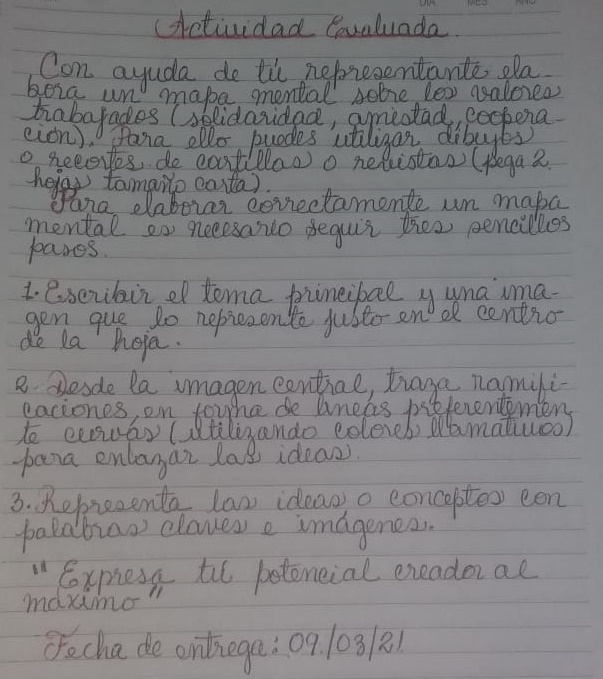 DIA MES AÑO
Actividad Evaluada.
Con ayuda de tú representante ela-
bora un mapa mental sobre los valores
trabajados (solidaridad, amistad, coopera-
ción). Para ello puedes utilizar dibujos
o recortes de cartillas o revistas (pega 2
hojas tamaño carta).
Para elaborar correctamente un mapa
mental es necesario seguir tres sencillos
pasos.
1. Escribir el tema principal y una ima-
gen que lo represente justo en el centro
de la hoja.
2. Desde la imagen central, traza ramifi-
caciones en forma de líneas preferentemen
te curvas (utilizando colores llamativos)
para enlazar las ideas.
3. Representa las ideas o conceptos con
palabras claves e imágenes.
"Expresa tú potencial creador al
máximo"
Fecha de entrega: 09/03/21